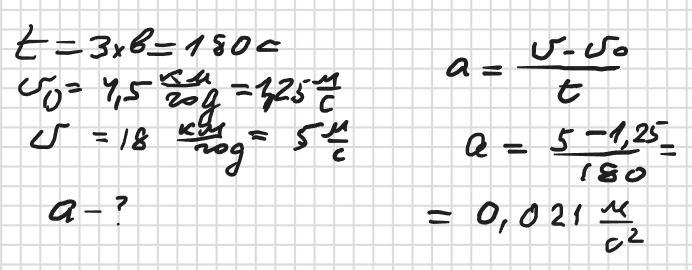 t = 3хв = 180 с
υ₀ = 4,5 км/год = 1,25 м/с
υ = 18 км/год = 5 м/с
a - ?
a = (υ - υ₀)/t
a = (5 - 1,25)/180 =
= 0,021 м/с²